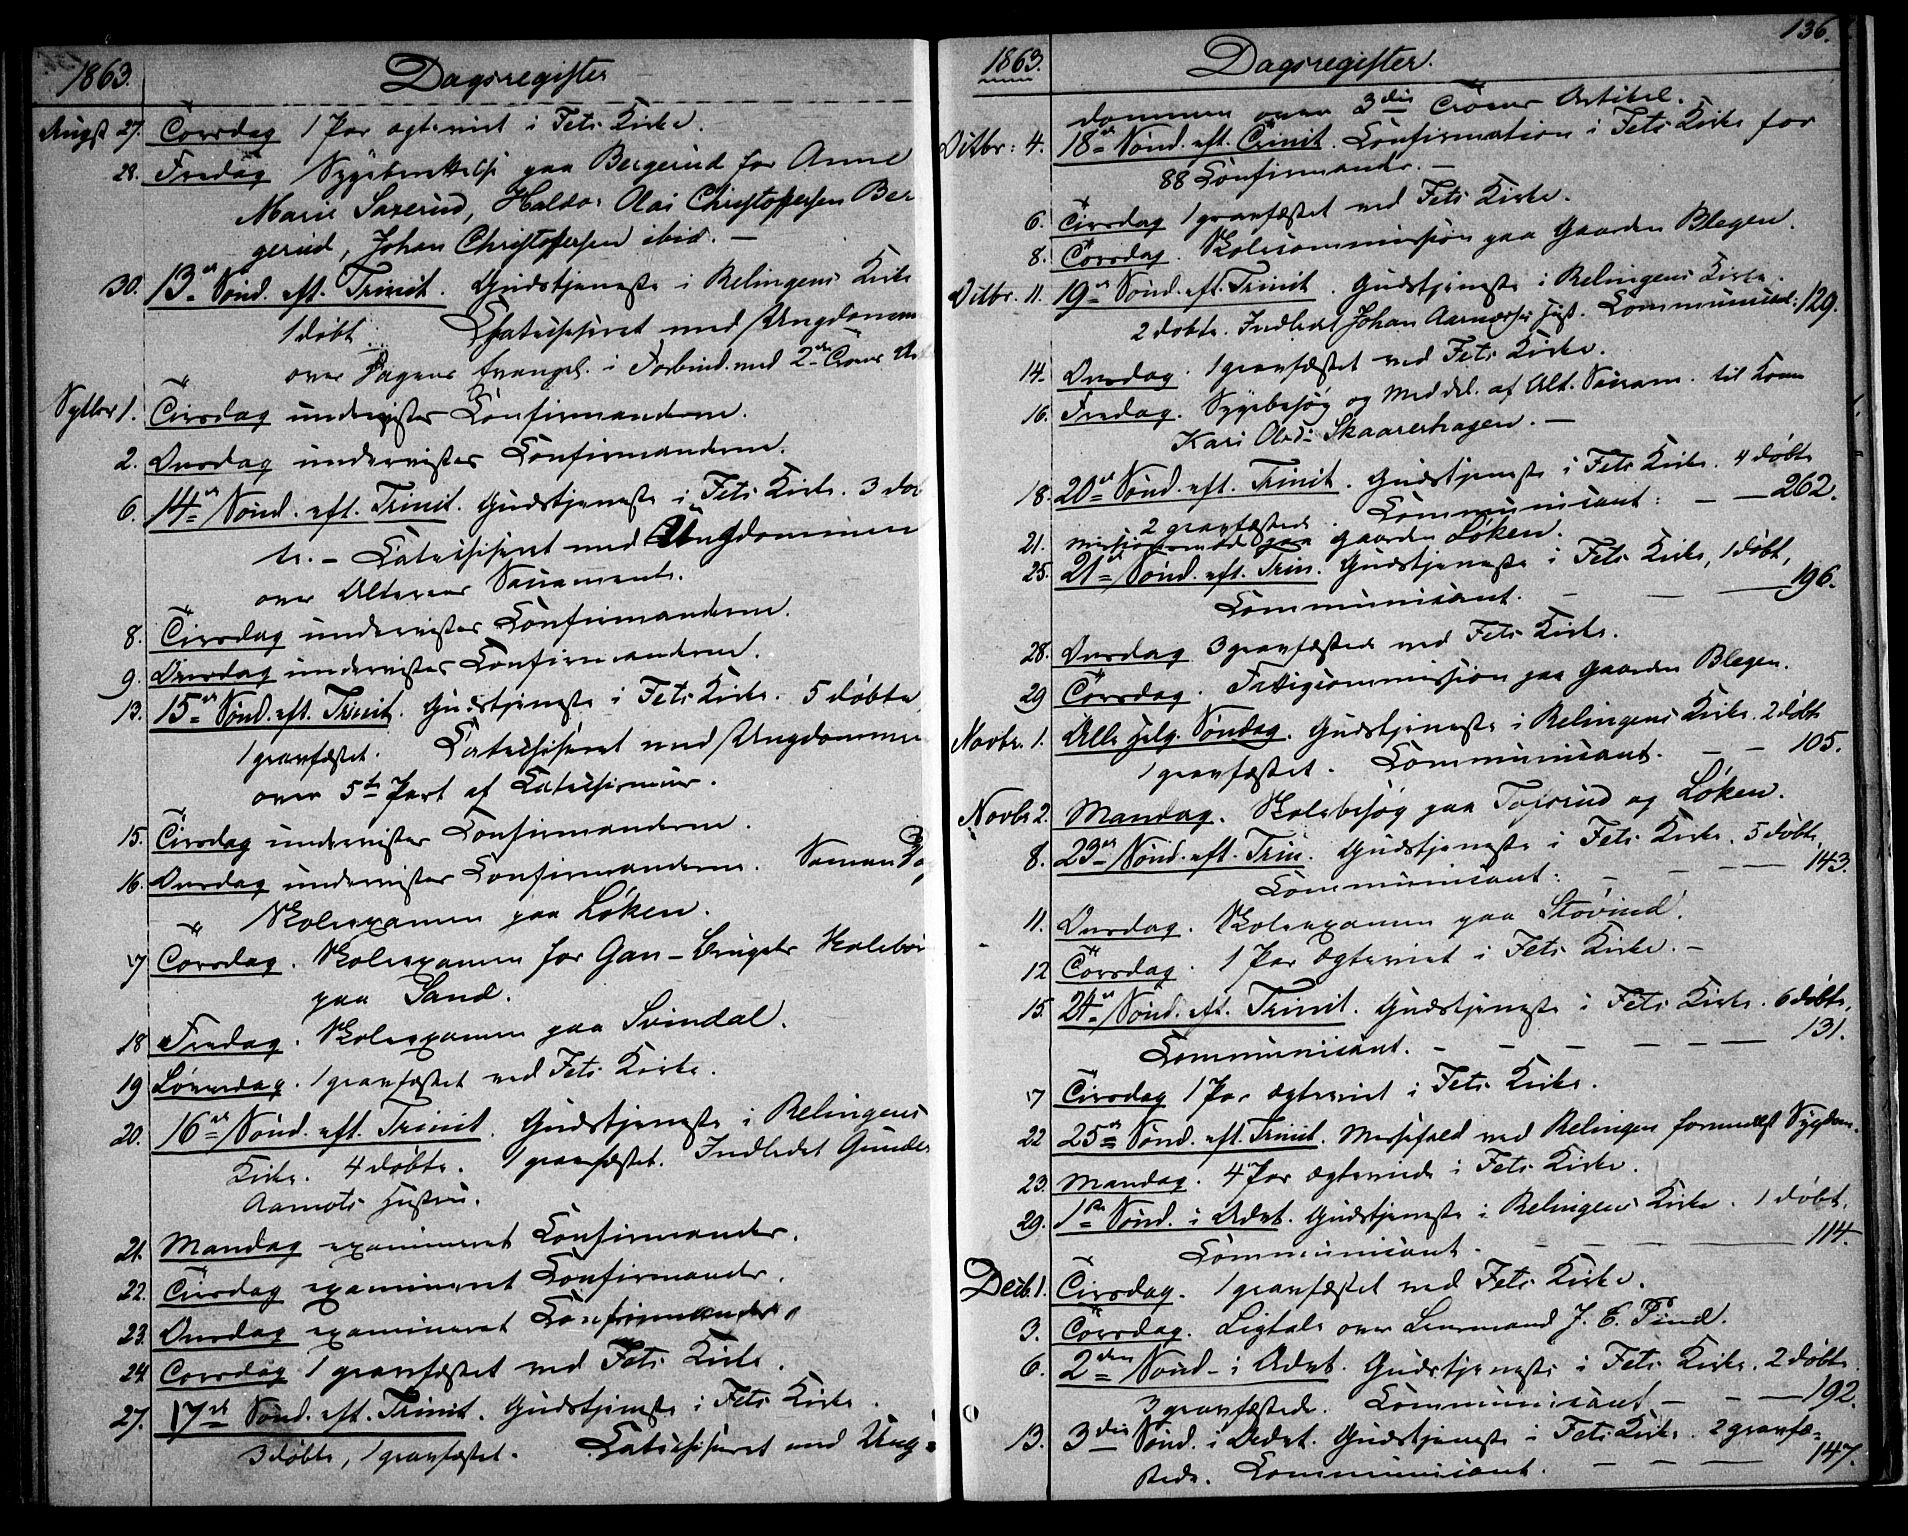 1863. Dagsregister
August 27. Torsdag 1 Par egteviet i Fets Kirke.
28. Fredag Sygeberettelse paa Bergerud for Anne
Marie Saxerud, Haldor Olai Christoffersen Ber
gerud, Johan Christoffersen ibid. —
30. 13de Sönd. eft. Trinit. Gudstjeneste i Relingens Kirke
1 döbt. Catechiseret med Ungdommen
over Dagens Evangel. i Forbind. med 2den Troens Art
Septbr 1. Tirsdag underviistes Confirmanderne.
2. Onsdag underviistes Confirmanderne.
6. 14de Sönd. eft. Trinit. Gudstjeneste i Fets Kirke. 3 döb
te. — Catechiseret med Ungdommen
over Alterens Sacramente.
8. Tirsdag underviistes Confirmanderne.
9. Onsdag underviistes Confirmanderne.
13. 15de Sönd. eft. Trinit. Gudstjeneste i Fets Kirke. 5 döbte,
1 gravfæstet. Catechiseret med Ungdommen
over 5te Part af Catechismus.
15. Tirsdag underviistes Confirmanderne.
16. Onsdag underviistes Confirmanderne. Samme Dag
Skoleexamen paa Löken.
17 Torsdag. Skoleexamen for Gan-Brugets Skolebör
paa Sand.
18 Fredag. Skoleexamen paa Svindal.
19 Löverdag. 1 gravfæstet ved Fets Kirke.
20. 16de Sönd. eft. Trinit. Gudstjeneste i Relingens
Kirke. 4 döbte. 1 gravfæstet. Indledet Gunder
Aamots Hustru.
21. Mandag examineret Confirmander.
22. Tirsdag examineret Confirmander.
23. Onsdag examineret Confirmander.
24 Torsdag 1 gravfæstet ved Fets Kirke.
27. 17de Sönd. eft. Trinit. Gudstjeneste i Fets Kirke.
3 döbte, 1 gravfæstet. Catechiseret med Ung-
136.
1863. Dagsregister.
dommen over 3die Troens Artikel.
Octbr: 4. 18de Sönd. eft. Trinit. Confirmation i Fets Kirke for
88 Confirmander. —
6. Tirsdag 1 gravfæstet ved Fets Kirke.
8. Torsdag. Skolecommission paa Gaarden Blegen.
Octbr. 11. 19de Sönd. eft. Trinit. Gudstjeneste i Relingens Kirke.
2 döbte. Indledt Johan Hust. Communicant: 129.
14. Onsdag. 1 gravfæstet ved Fets Kirke.
16. Fredag. Sygebesög og Meddel. af Alt. Sacram. til Kone
Kari Olsd. Skaarerhagen. —
18. 20de Sönd. eft. Trinit. Gudstjeneste i Fets Kirke. 4 döbte
2 gravfæstede. Communicant: — — 262.
21. Missionsmöde paa Gaarden Löken.
25. 21de Sönd. eft. Trin. Gudstjeneste i Fets Kirke, 1 döbt,
Communicant. — — — 196.
28. Onsdag 3 gravfæstede ved Fets Kirke.
29 Torsdag. Fattigcommission paa Gaarden Blegen.
Novbr. 1. Alle Helg. Söndag. Gudstjeneste i Relingens Kirke. 2 döbte
1 gravfæstet. Communicant. — — 105.
Novbr 2. Mandag. Skolebesög paa og Löken.
8. 23de Sönd. eft. Trin. Gudstjeneste i Fets Kirke. 5 döbte,
Communicant: — — — 143.
11. Onsdag. Skoleexamen paa Stövind.
12 Torsdag. 1 Par ægteviet i Fets Kirke. —
15. 24de Sönd. eft. Trinit. Gudstjeneste i Fets Kirke. 6 döbte,
Communicant. — — — — — — 131.
17 Tirsdag 1 Par ægteviet i Fets Kirke.
22 25de Sönd. eft. Trinit. Messefald ved Relingen formedelst Sygdom.
23. Mandag. 4 Par ægteviede i Fets Kirke.
29. 1ste Sönd. i Advt. Gudstjeneste i Relingens Kirke. 1 döbt.
Communicant. — — — 114.
Decb. 1. Tirsdag. 1 gravfæstet ved Fets Kirke.
3. Torsdag. Ligtale over Lensmand J. C. Pind.
6. 2den Sönd. i Advt. Gudstjeneste i Fets Kirke. 2 döbte
3 gravfæstede. Communicant — — — 192.
13. 3die Sönd. i Advt. Gudstjeneste i Fets Kirke. 2 gravfæ-
stede. Communicant. — — — 147.